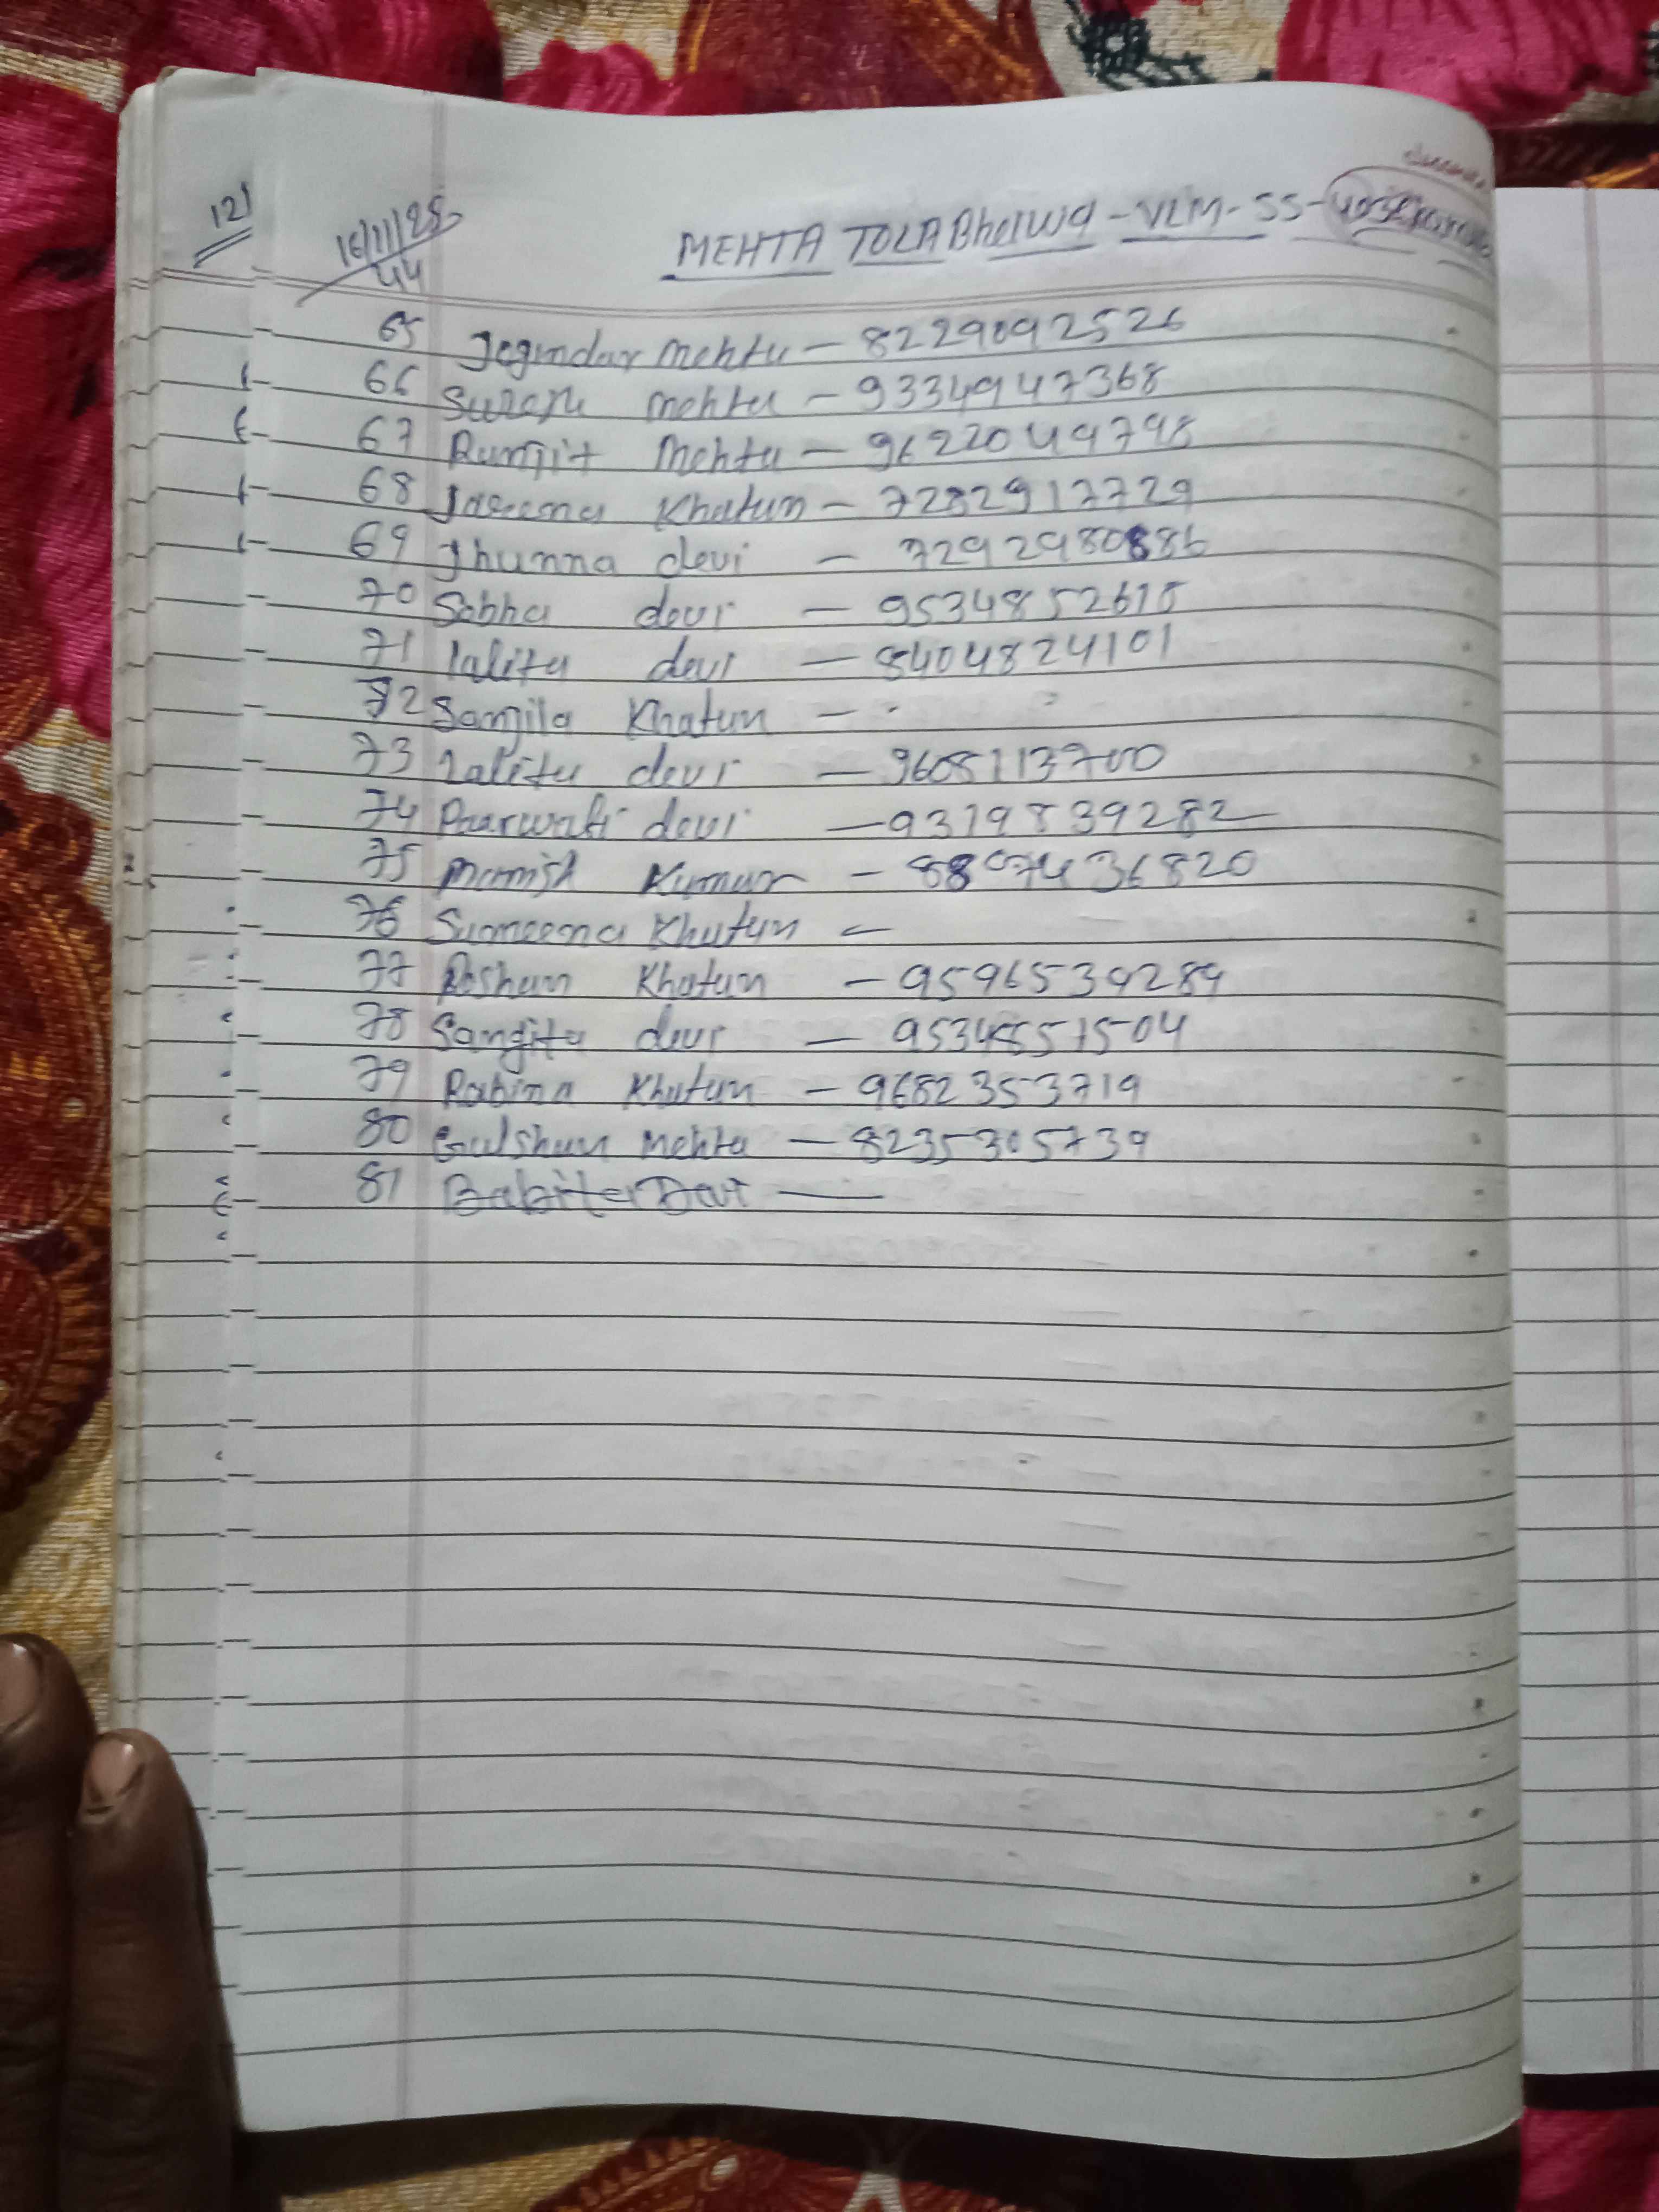 121
16/11/25
44
MEHTA TOLA Bherwa - VLM - SS -
65 Jogindar Mehta - 8229092526
66 Suresh Mehta - 9334947368
67 Runjit Mehta - 9622049798
68 Jaseena Khatun - 7282917729
69 Jhunna devi - 7292980886
70 Sobha devi - 9534852618
71 lalita devi - 8404824101
72 Sanjila Khatun -
73 Lalita devi - 9608113700
74 Parwati devi - 9319839282
75 Manish Kumar - 8807436820
76 Sumeena Khutun -
77 Roshan Khatun - 9596539289
78 Sangita devi - 9534851504
79 Rabina Khutun - 9682353719
80 Gulshan Mehta - 8235305739
81 Babita Devi -